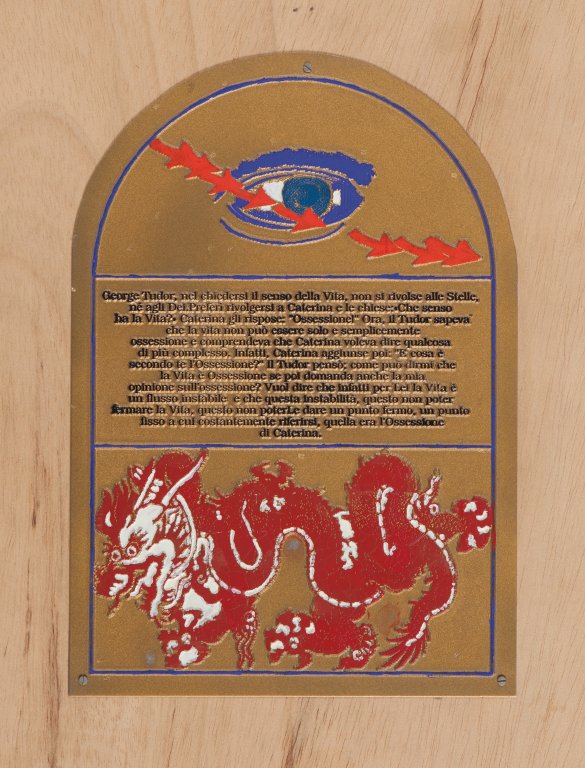 George Tudor, nel chiedersi il senso della Vita, non si rivolse alle Stelle,
né agli Dei. Preferì rivolgersi a Caterina e le chiese: «Che senso
ha la Vita?» Caterina gli rispose: "Ossessione!" Ora, il Tudor sapeva
che la vita non può essere solo e semplicemente
ossessione e comprendeva che Caterina voleva dire qualcosa
di più complesso. Infatti, Caterina aggiunse poi: "E cosa è
secondo te l'Ossessione?" Il Tudor pensò; come può dirmi che
la Vita è Ossessione se poi domanda anche la mia
opinione sull'ossessione? Vuol dire che infatti per Lei la Vita è
un flusso instabile e che questa instabilità, questo non poter
fermare la Vita, questo non poterLe dare un punto fermo, un punto
fisso a cui costantemente riferirsi, quella era l'Ossessione
di Caterina.